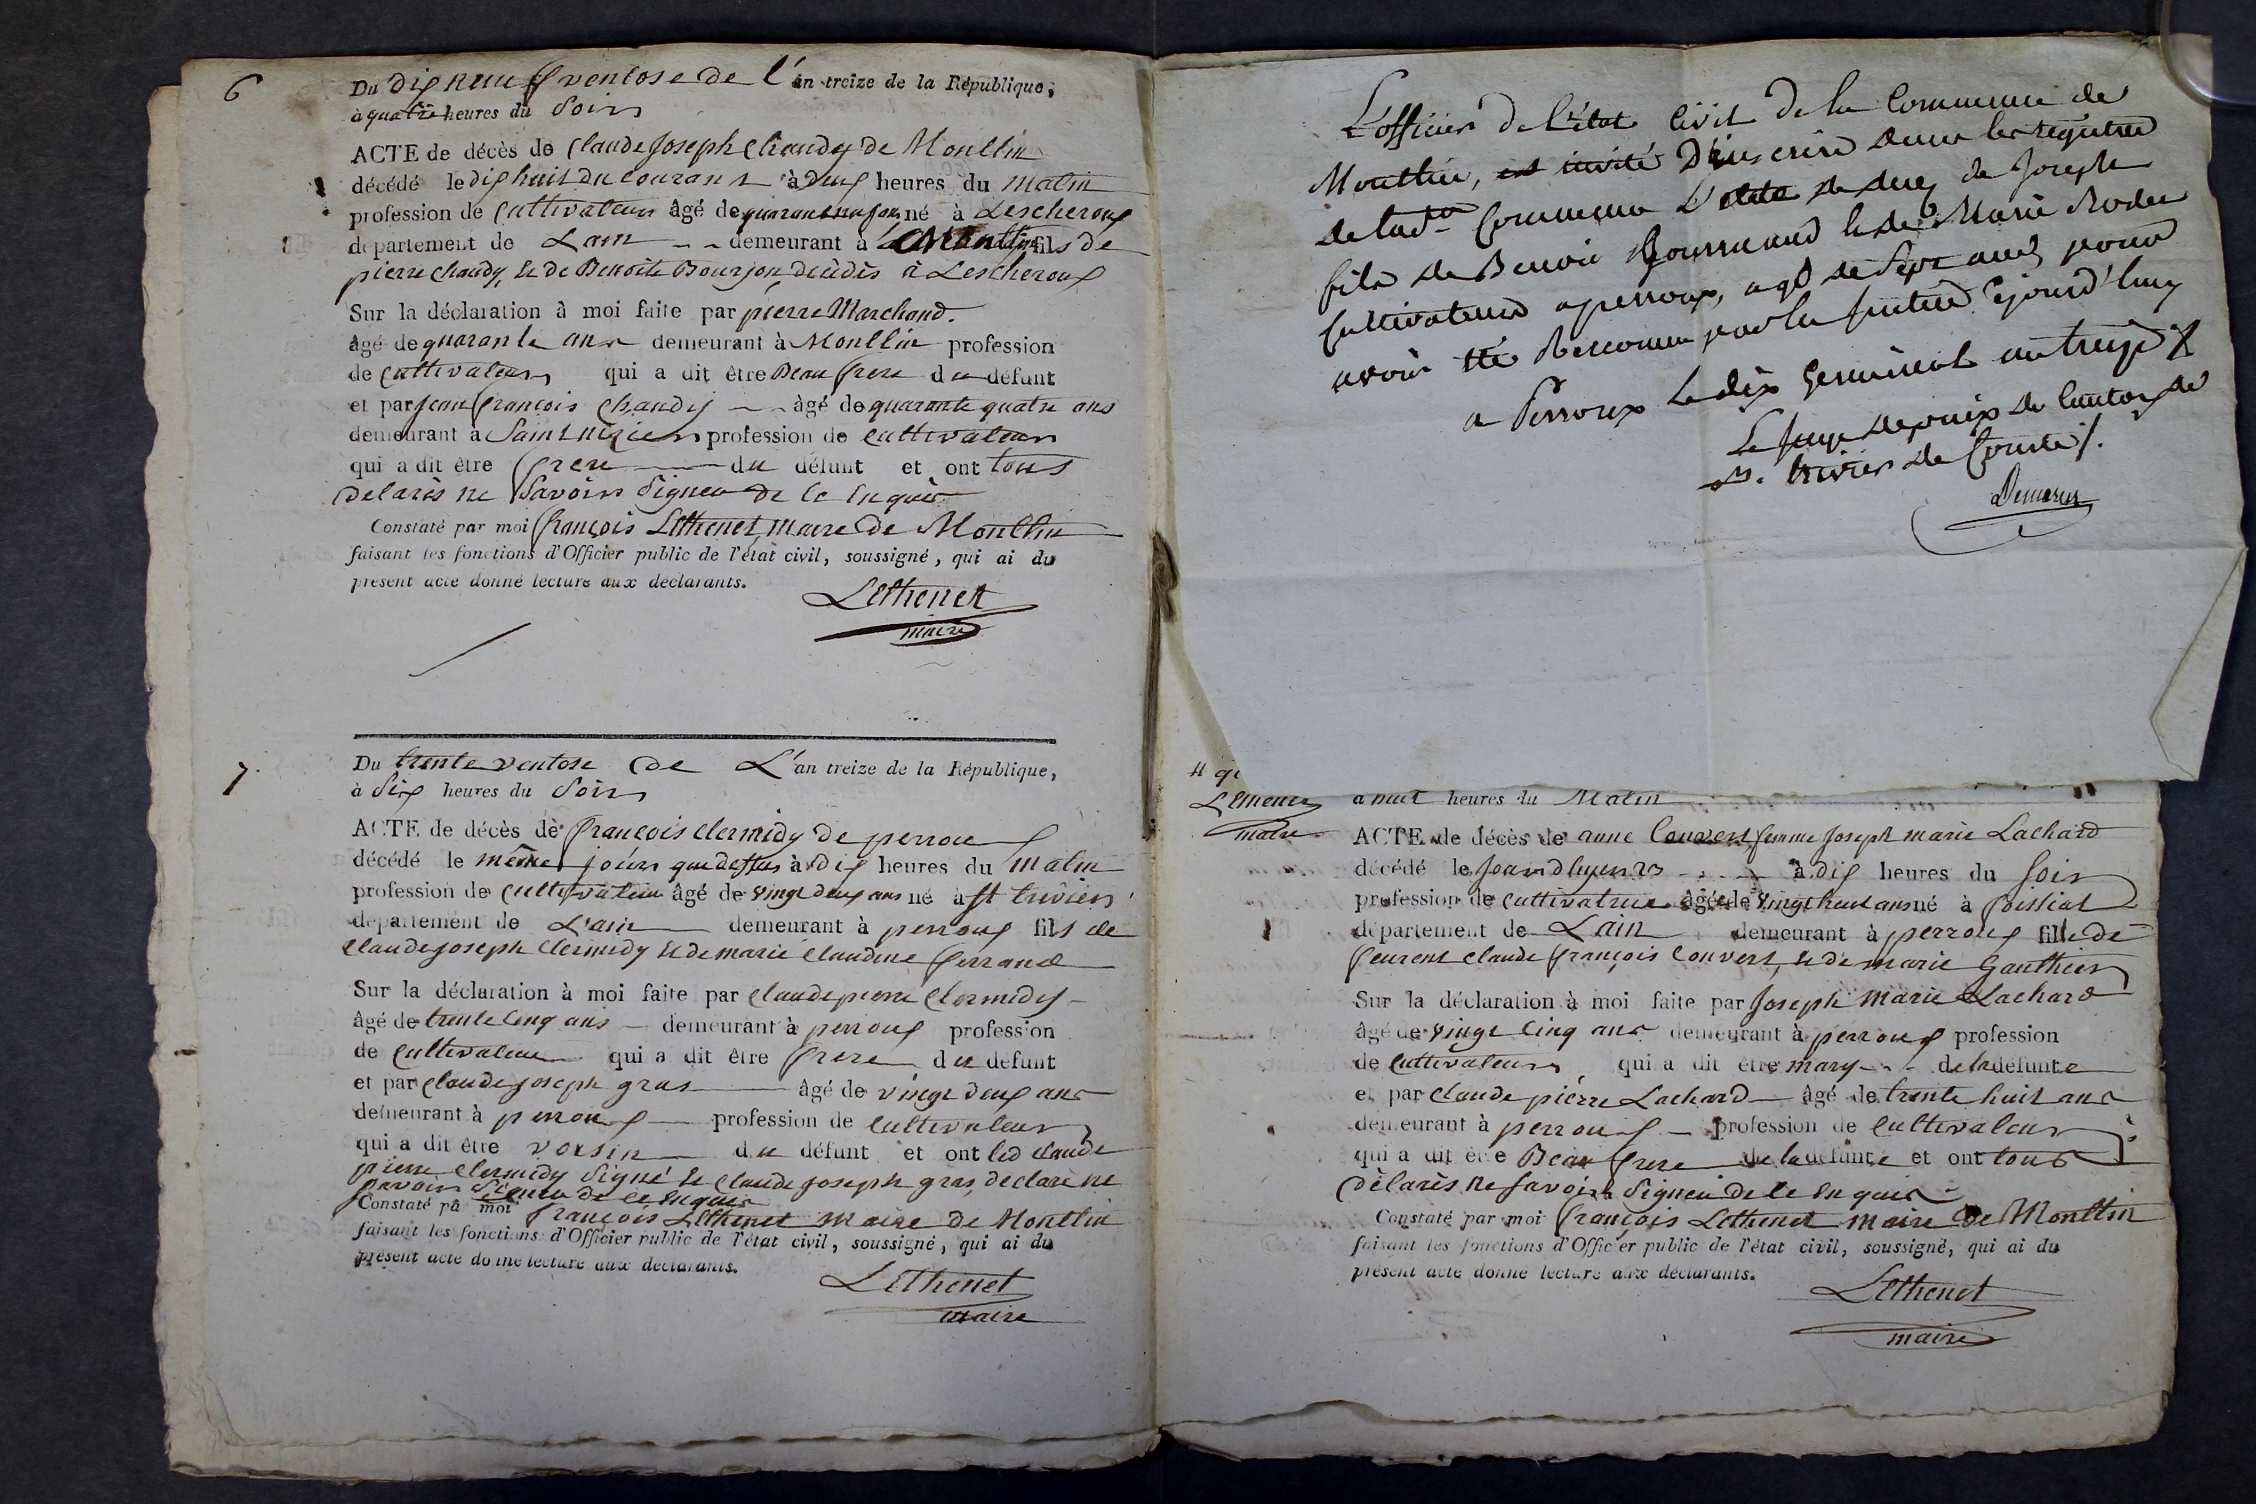 6
Du dix neuf ventose de l'an treize de la République,
à quatre heures du Soir
ACTE de décès de Claude Joseph Chaudy de Montlin
décédé le dix huit du courant à deux heures du matin
profession de cultivateur âgé de quarante né à Lescheroux
département de Lain demeurant à Montlin fils de
pierre Chaudy, et de Benoite Bourjon décédés à Lescheroux
Sur la déclaration à moi faite par pierre Marchand.
âgé de quarante ans demeurant à Montlin profession
de cultivateur qui a dit être Beau frere du défunt
et par Jean françois Chaudy âgé de quarante quatre ans
demeurant à Saint nizier profession de cultivateur
qui a dit être frere du défunt et ont tous
délarés ne Savoir Signer de ce Enquis
Constaté par moi françois Lethenet, maire de Montlin
faisant les fonctions d'Officier public de l'état civil, soussigné, qui ai du
présent acte donné lecture aux déclarants.
Lethenet
maire
7
Du trente ventose de L'an treize de la République,
à Six heures du Soir
ACTE de décès de françois Clermidy de perroux
décédé le même jour que dessus à dix heures du matin
profession de cultivateur âgé de vingt deux ans né à st trivier
département de L'ain demeurant à perroux fils de
Claude joseph Clermidy et de marie Claudine ferrand
Sur la déclaration à moi faite par Claude pierre Clermidy
âgé de trente cinq ans demeurant à perroux profession
de cultivateur qui a dit être frere du défunt
et par Claude joseph gras âgé de vingt deux ans
demeurant à perroux profession de cultivateur
qui a dit être voisin du défunt et ont led claude
pierre Clermidy Signé et Claude joseph gras, déclaré ne
savoir Signer de ce Enquis
Constaté par moi françois Lethenet maire de Montlin
faisant les fonctions d'Officier public de l'état civil, soussigné, qui ai du
présent acte donné lecture aux déclarants.
Lethenet
maire
L'officier de l'état Civil de la Commune de
Montlin, est invité D'inscrire dans les registres
de lad. Commune de Joseph
fils de Benoit et de Marie Rodet
Cultivateurs a perroux, agé de Sept ans pour
avoir été Reconnu par la Justice Cejourd'huy
a Perroux le dix germinal an treize
Le Juge de paix du Canton de
St. trivier de Courtes
Lethenet
maire
a huit heures du Matin
ACTE de décès de anne Convert femme Joseph marie Lachard
décédé le à dix heures du soir
profession de cultivatrice âgée de vingt huit ans né à foissiat
département de Lain demeurant à perroux fille de
feurent Claude françois Convert, et de marie Gauthier
Sur la déclaration à moi faite par Joseph Marie Lachard
âgé de vingt cinq ans demeurant à perroux profession
de cultivateur qui a dit être mary de la défunte
et par Claude pierre Lachard âgé de trente huit ans
demeurant à perroux profession de cultivateur
qui a dit être Beau frere de la défunte et ont tous
délarés ne savoir Signer de ce Enquis
Constaté par moi françois Lethenet maire de Montlin
faisant les fonctions d'Officier public de l'état civil, soussigné, qui ai du
présent acte donné lecture aux déclarants.
Lethenet
maire